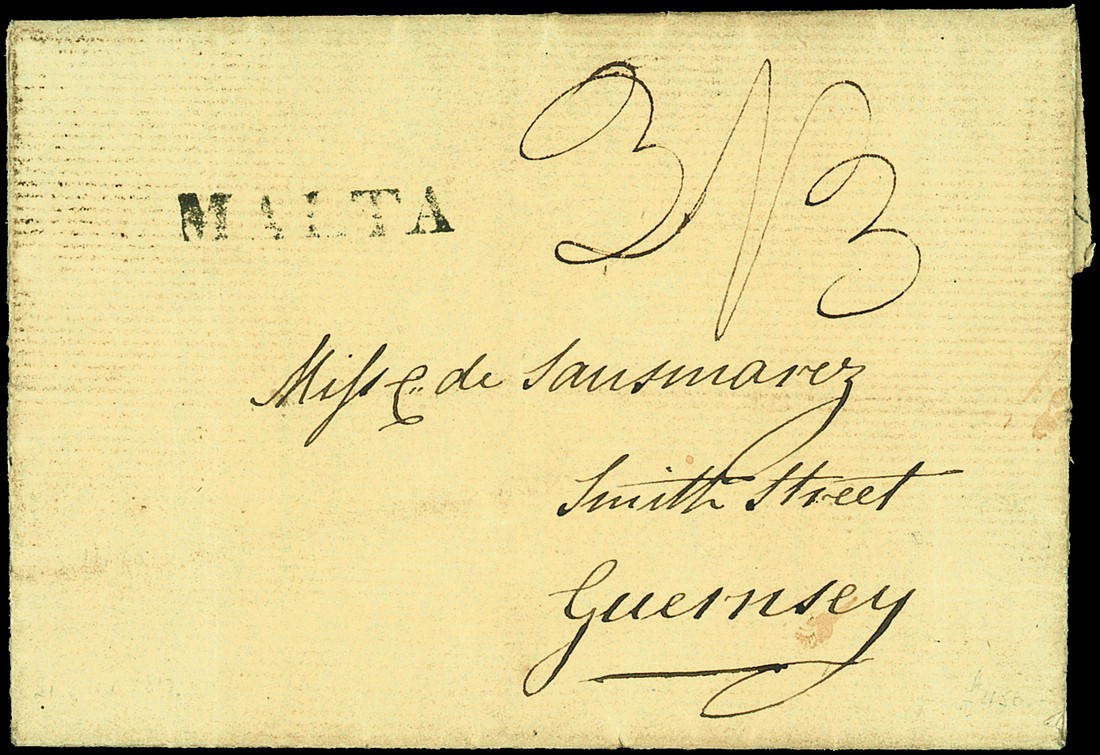 3/3
MALTA
Miſs C. de Sausmarez
Smith Street
Guernsey